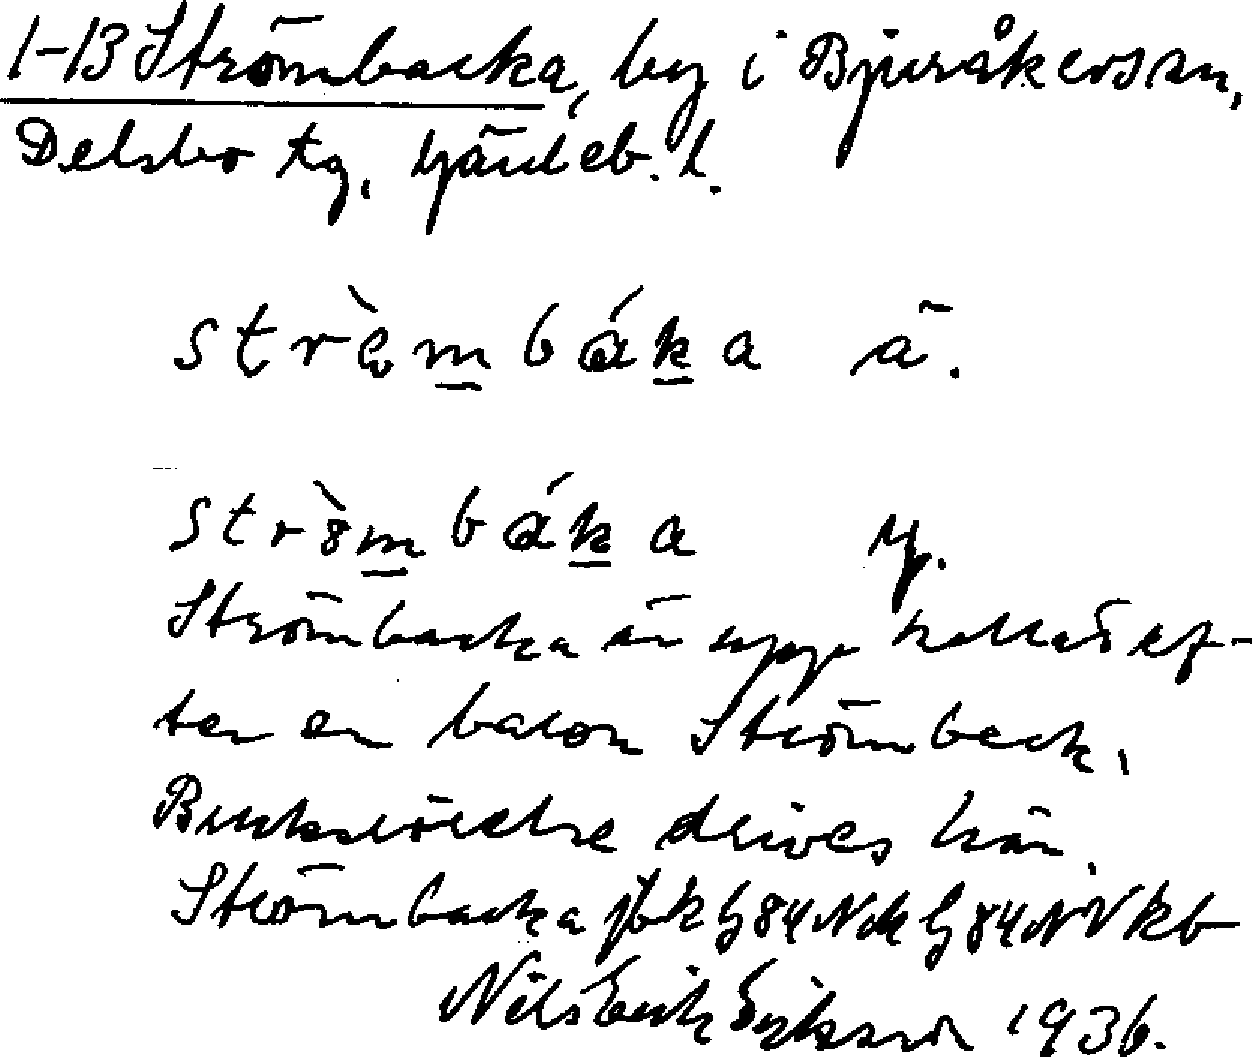 1-13 Strömbacka, by i Bjuråkers sn,
Delsbo tg, Gävleb. l.
strèmbáka ä.
stròmbáka y.
Strömbacka är upp kallad ef-
ter en baron Strömbeck.
Bruksrörelse drives här.
Strömbacka jbk G 84 NV kb
Nils Erik Eriksson 1936.